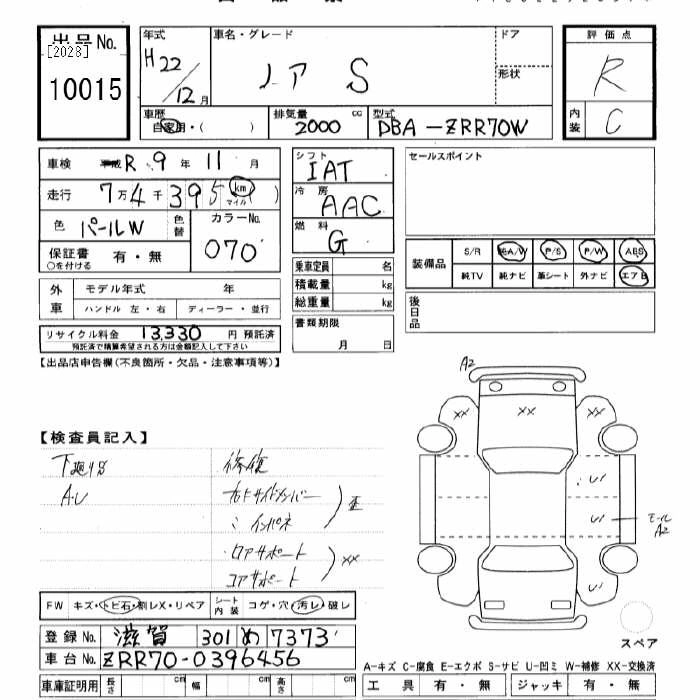 出品No.
[2028]
10015
年式
H22/12月
車名・グレード
ノア S
ドア
形状
評価点
R
内装
C
車歴
自家用・( )
排気量
2000 cc
型式
DBA-ZRR70W
車検 平成 R.9年 11月
走行 7万4千395 km マイル ( )
色 パールW
色替
カラーNo.
070
保証書 有・無
○を付ける
シフト
IAT
冷房
AAC
燃料
G
セールスポイント
装備品
S/R 純A/W P/S P/W ABS
純TV 純ナビ 革シート 外ナビ エアB
外車
モデル年式 年
ハンドル 左・右 ディーラー・並行
乗車定員 名
積載量 kg
総重量 kg
後日品
リサイクル料金 13,330 円 預託済
預託済で精算希望される方は金額記入して下さい
書類期限
月 日
【出品店申告欄(不良箇所・欠品・注意事項等)】
【検査員記入】
A-U
修復
右Fサイドメンバー
〃 インパネ
歪
ロアサポート
コアサポート
XX
A2
XX XX XX
U1
U1
モール A2
U1
スペア
FW キズ・トビ石・割レX・リペア
シート内装 コゲ・穴・汚レ・破レ
登録No. 滋賀 301 め 7373
車台No. ZRR70-0396456
車庫証明用 長さ cm 幅 cm 高さ cm
A-キズ C-腐食 E-エクボ S-サビ U-凹ミ W-補修 XX-交換済
工具 有・無 ジャッキ 有・無